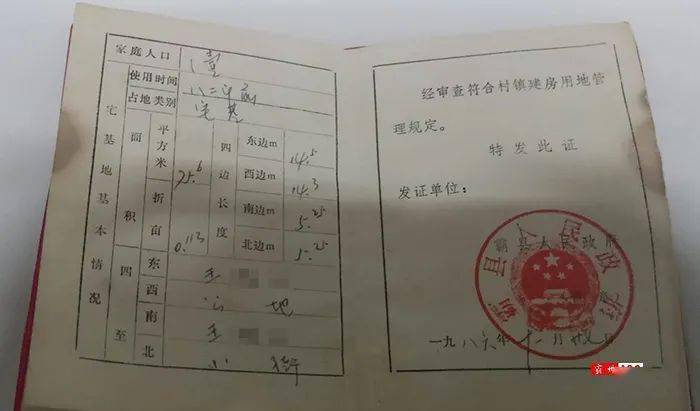 家庭人口
壹
使用时间
八二年前
占地类别
宅基
宅基地基本情况
面积
平方米
75.6
折亩
0.113
四边长度
东边m
14.5
西边m
14.3
南边m
5.25
北边m
5.25
四至
东
王
西
公地
南
王
北
小
经审查符合村镇建房用地管
理规定。
特发此证
发证单位：
霸县人民政府
霸县人民政府
一九八六年十一月廿九日
霸州